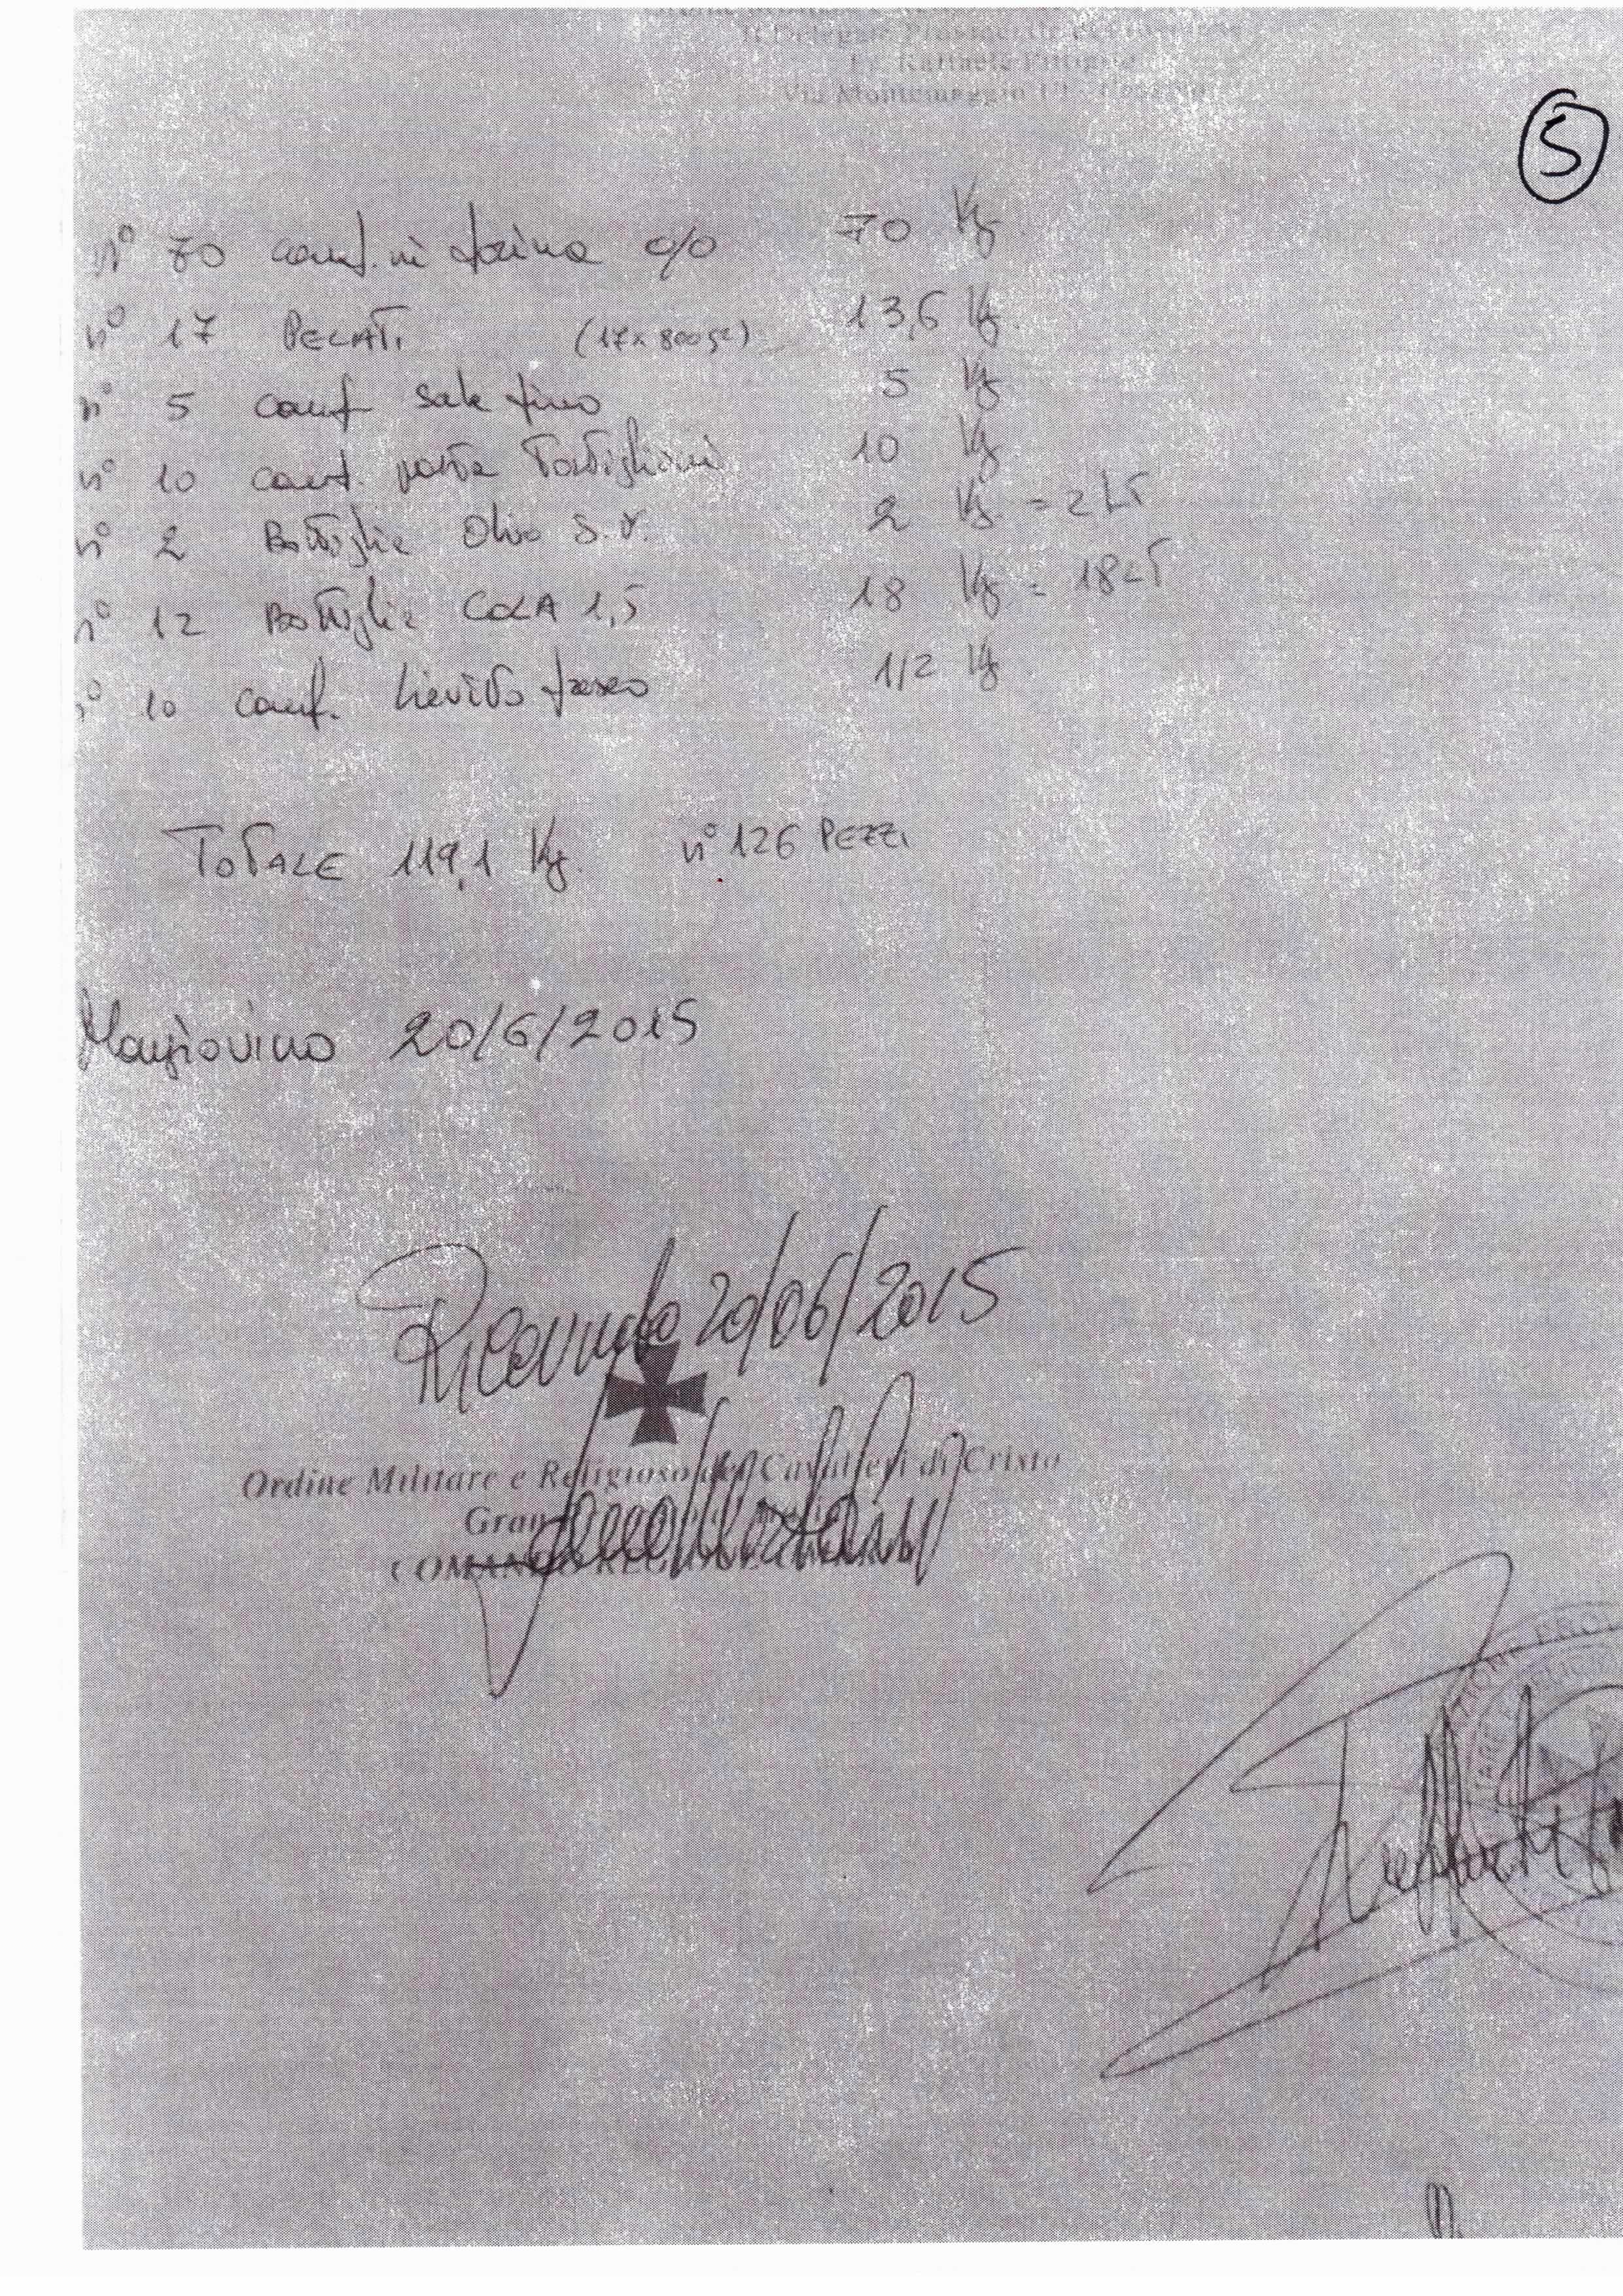 Il Delegato
Fr. Raffaele
Via Montemaggio
5
n° 70 conf. ni farina 0/0 70 Kg.
n° 17 PELATI (17x800gr) 13,6 Kg.
n° 5 conf sale fino 5 Kg
n° 10 conf. pasta Tortiglioni 10 Kg
n° 2 Bottiglie Olio S.V. 2 Kg. = 2 LT
n° 12 Bottiglie COLA 1,5 18 Kg = 18 LT
n° 10 conf. Lievito fresco 1/2 Kg
TOTALE 119,1 Kg. n° 126 PEZZI
Mangiovino 20/6/2015
Ricevuto 20/06/2015
Ordine Militare e Religioso dei Cavalieri di Cristo
COMANDO